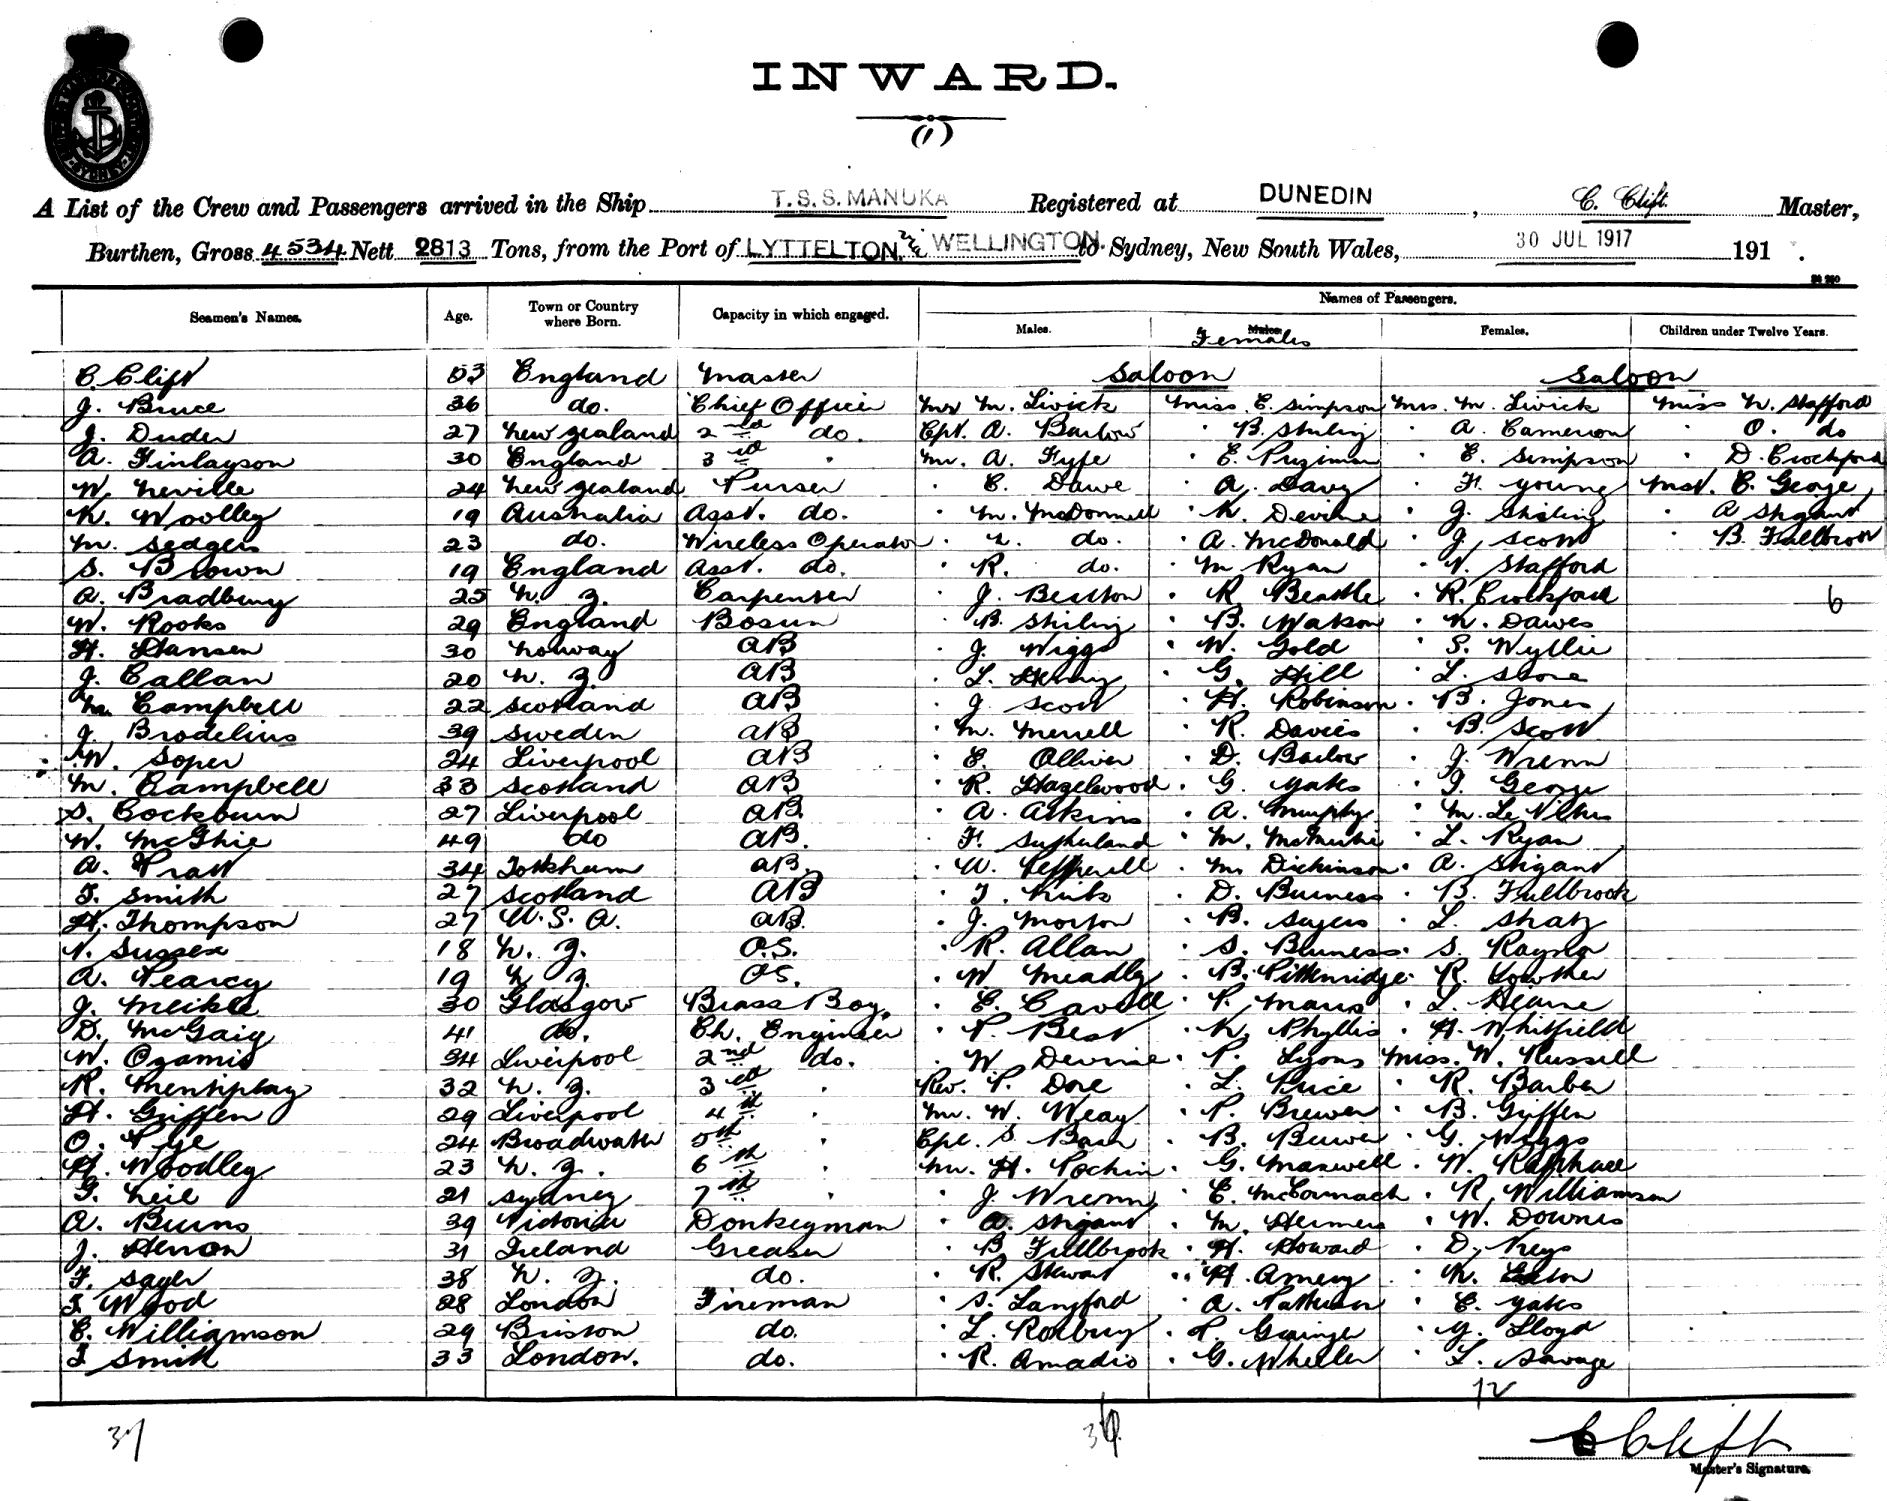 INWARD.
(1)
A List of the Crew and Passengers arrived in the Ship T.S.S. MANUKA Registered at DUNEDIN, C. Clift Master,
Burthen, Gross 4534 Nett 2813 Tons, from the Port of LYTTELTON, & WELLINGTON. to Sydney, New South Wales, 30 JUL 1917 191 .
Names of Passengers.
Seamen's Names. Age. Town or Country where Born. Capacity in which engaged. Males. Males. Females Females. Children under Twelve Years.
C. Clift 53 England Master Saloon Saloon
J. Bruce 36 do. Chief Officer Mr M. Livick Miss. E. Simpson Mrs. M. Livick Miss N. Stafford
J. Duder 27 New Zealand 2nd do. Cpt. A. Barlow " B. Shiling " A. Cameron " O. do
A. Finlayson 30 England 3rd " Mr. A. Fyfe " E. " E. Simpson " D. Crockford
W. Neville 24 New Zealand Purser " C. Dawe " A. Davy " F. Young Mast. C. George
K. Woolley 19 Australia Asst. do. " M. McDonnell " K. Devine " J. Shiling " A Stigant
M. Sedgers 23 do. Wireless Operator " L. do. " A. McDonald " J. Scott " B. Fullbrook
S. Brown 19 England Asst. do. " R. do. " M Ryan " V. Stafford
A. Bradbury 25 N. Z. Carpenter " J. Beatson " R Beattie " R. Crockford 6
W. Rooks 29 England Bosun " B. Shiling " B. Watson " K. Dawes
H. Hansen 30 Norway AB " J. Wiggs " W. Gold " S. Wyllie
J. Callan 20 N. Z. AB " L. Henry " G. Hill " L. Stone
M. Campbell 22 Scotland AB " J Scott " H. Robinson " B. Jones
J. Brodelius 39 Sweden AB " M. Merrell " R. Davies " B. Scott
W. Soper 24 Liverpool AB " E. Alliver " D. Barlow " J. Wrenn
M. Campbell 33 Scotland AB " R. Hazelwood " G. Yates " J. George
S. Cockburn 27 Liverpool AB. " A. Atkins " A. Murphy " M.
W. McGhie 49 do AB. " F. Sutherland " M. " L. Ryan
A. Pratt 34 AB. " W. Pepperell " M. Dickinson " A. Stigant
T. Smith 27 Scotland AB " T. Kirks " D. Burness " B. Fullbrook
H. Thompson 27 U.S.A. AB. " J. Morton " B. Sayers " L. Shatz
V. Sussex 18 N. Z. O.S. " R. Allan " S. Burness " S. Raynor
A. Pearcy 19 N Z. OS. " W Meadly " B. Pittenridge " R. Lowther
J. Meikle 30 Glasgow Brass Boy. " C. Cavell " P. Manis " L. Hearne
D. McGaig 41 do. Ch. Engineer " P. Best " K. Phyllis " H. Whitfield
W. Ozamis 34 Liverpool 2nd do. " W Devine " P. Lyons Miss. W. Russell
R. Menhplay 32 N. Z. 3rd " Rev. P. Dore " L. Price " R. Barber
H. Griffen 29 Liverpool 4th " Mr. W. Weay " P. Brewer " B. Griffen
O. Pye 24 Broadwath 5th " Cpl. S. Barn " B. Brewer " G. Wiggs
H. Woodley 23 N. Z. 6th " Mr. H. Pochin " G. Maxwell " W. Raphael
G. Neil 21 Sydney 7th " " J. Wrenn " E. McCormack " R. Williamson
A. Burns 39 Victoria Donkeyman " A. Stigant " M. Hermens " W. Downes
J. Heron 31 Ireland Greaser " B. Fullbrook " H. Howard " D. Keys
F. Sayer 38 N. Z. do. " R. Stewart " H. Amery " K. Exton
T. Wood 28 London Fireman " S. Langford " A. " E. Yates
C. Williamson 29 Briston do. " L. Roxbury " P. Grainger " Y. Lloyd
T Smith 33 London. do. " R. Amadio " G. Wheeler " L. Savage
12
37
C Clift
Master's Signature.